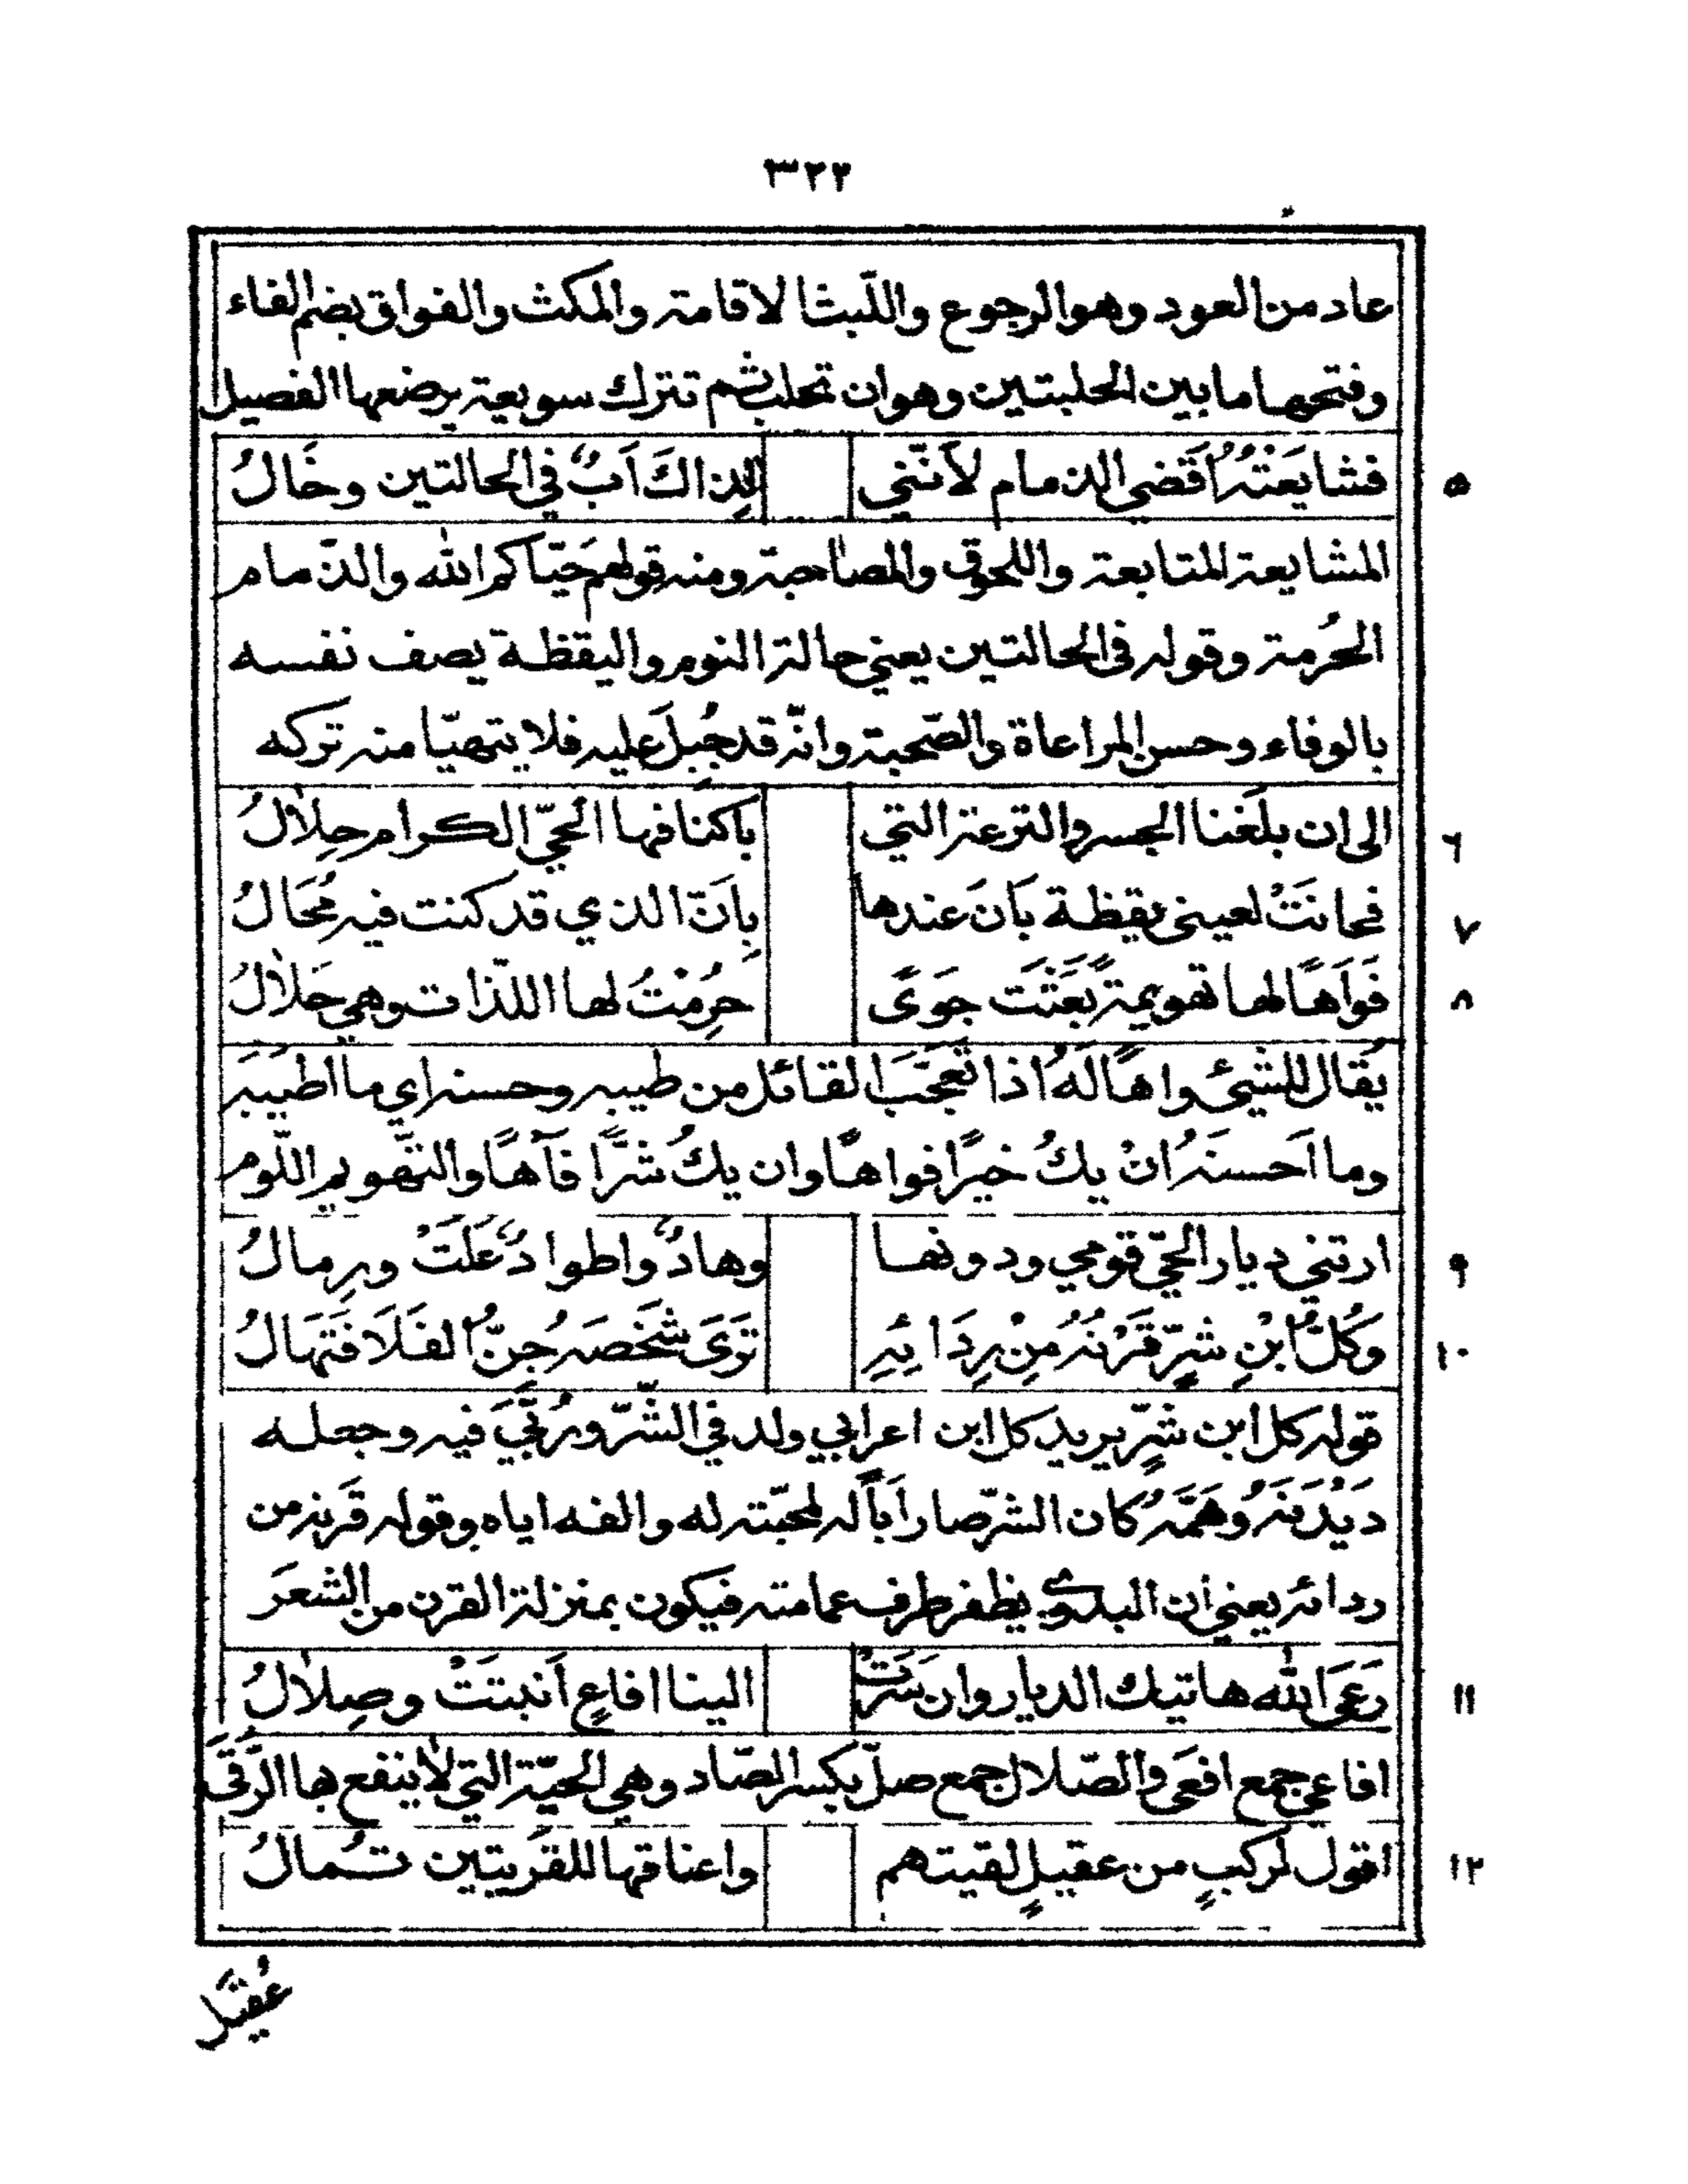 ٣٢٢
عاد من العود وهو الرجوع واللّبث الاقامة والمكث والفواق بضم الفاء
وفتحها ما بين الحلبتين وهو ان تحلب ثم تترك سويعة يرضعها الفصيل
٥ فشايَعْتُهُ اُقَضي الذمام لأنّني لِذاكَ اَبٌ في الحالتين وخَالُ
المشايعة المتابعة واللحوق والمصاحبة ومنه قولهم حَيّاكم الله والذّمام
الحُرمة وقوله في الحالتين يعني حالة النوم واليقظة يصف نفسه
بالوفاء وحسن المراعاة والصّحبة وانّه قد جُبِلَ عليه فلا يتهيّا منه تركه
٦ الى ان بلَغنا الجسر والترعة التي باكنافها الحيّ الكرام حِلالُ
٧ فحانَتْ لعيني يقظة بَانَ عندها بِاَنّ الذي قد كنت فيه مُحَالُ
٨ فَوَاهًا لها تهويمةً بَعَثَت جَوَىً حرِمْتُ لها اللذّات وهي حَلالُ
يُقال للشيئ واهًا لَهُ اذا تعجَّبَ القائل من طيبه وحسنه اي ما اطيَبَه
وما اَحسنَهُ انْ يكُ خيرًا فواهًا وان يكُ شرًّا فآهًا والتّهويم النّوم
٩ ارتني ديار الحيّ قومي ودونها وهادٌ واطوادٌ عَلَتْ ورِمالُ
١٠ وَكُلُّ ابْنِ شرٍّ قَرْنُهُ مِنْ رِدَائِهِ تَرَى شَخصَهُ جِنُّ الفَلَا فَتَهَالُ
قوله كل ابن شرٍّ يريد كل ابن اعرابي ولد في الشّرّ ورُبّيَ فيه وجعله
دَيْدَنَهُ وهَمَّهُ كان الشرّ صار اَبًا له لمحبّته له والفه اياه وقوله قَرنه من
ردائه يعني ان البدوي يظفر طرف عمامته فيكون بمنزلة القرن من الشعَر
١١ رَعَى الله هاتيك الديار وان سَرَتْ الينا افاعٍ اَنبتَتْ وصِلالُ
افاعي جمع افعَى والصّلال جمع صلّ بكسر الصّاد وهي الحيّة التي لا ينفع بها الرُّقَى
١٢ اقول لركبٍ من عقيلٍ لقيتهم واعناقها للقريتين تُمالُ
عُقيَل